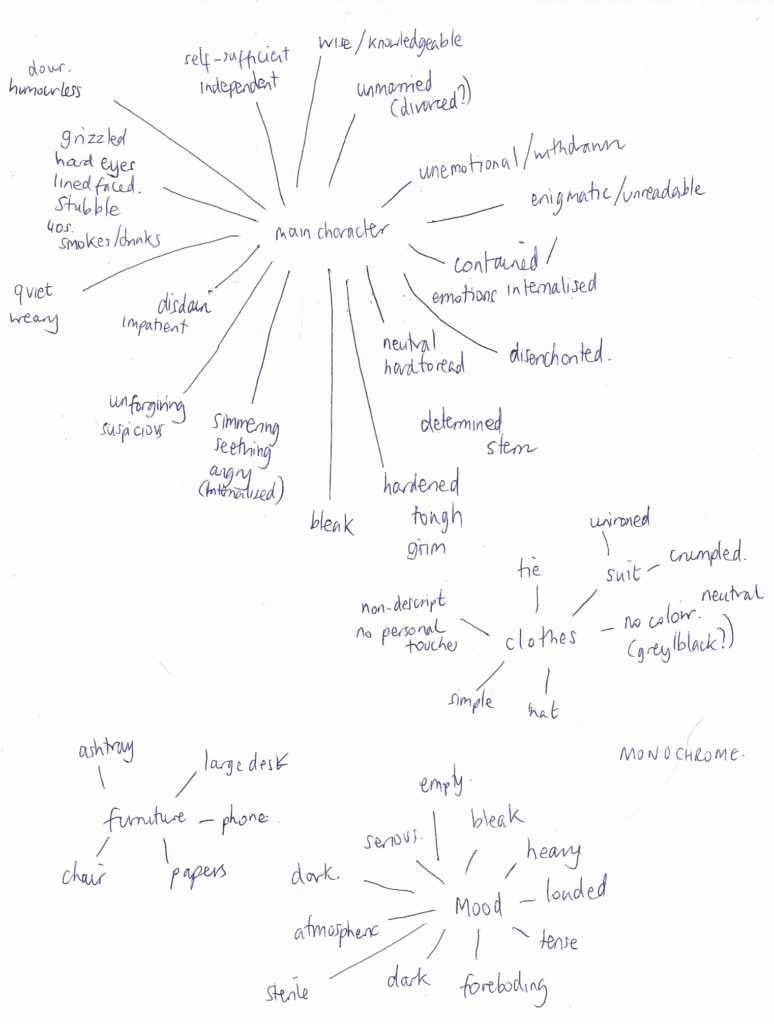 wise/knowledgeable
self-sufficient
independent
dour.
humourless
unmarried
(divorced?)
grizzled
hard eyes
lined faced.
stubble
40s.
smokes/drinks
unemotional/withdrawn
enigmatic/unreadable
main character
contained/
emotions internalised
quiet
weary
disdain
impatient
neutral
hard to read
disenchanted.
unforgiving
suspicious
simmering
seething
angry
(internalised)
determined
stern
bleak
hardened
tough
grim
unironed
tie
suit
crumpled.
non-descript
no personal
touches
clothes
no colour.
neutral
(grey/black?)
simple
hat
MONOCHROME.
ashtray
large desk
furniture
phone
chair
papers
empty.
bleak
serious.
heavy
dark.
Mood
loaded
atmospheric
tense
sterile
dark
foreboding